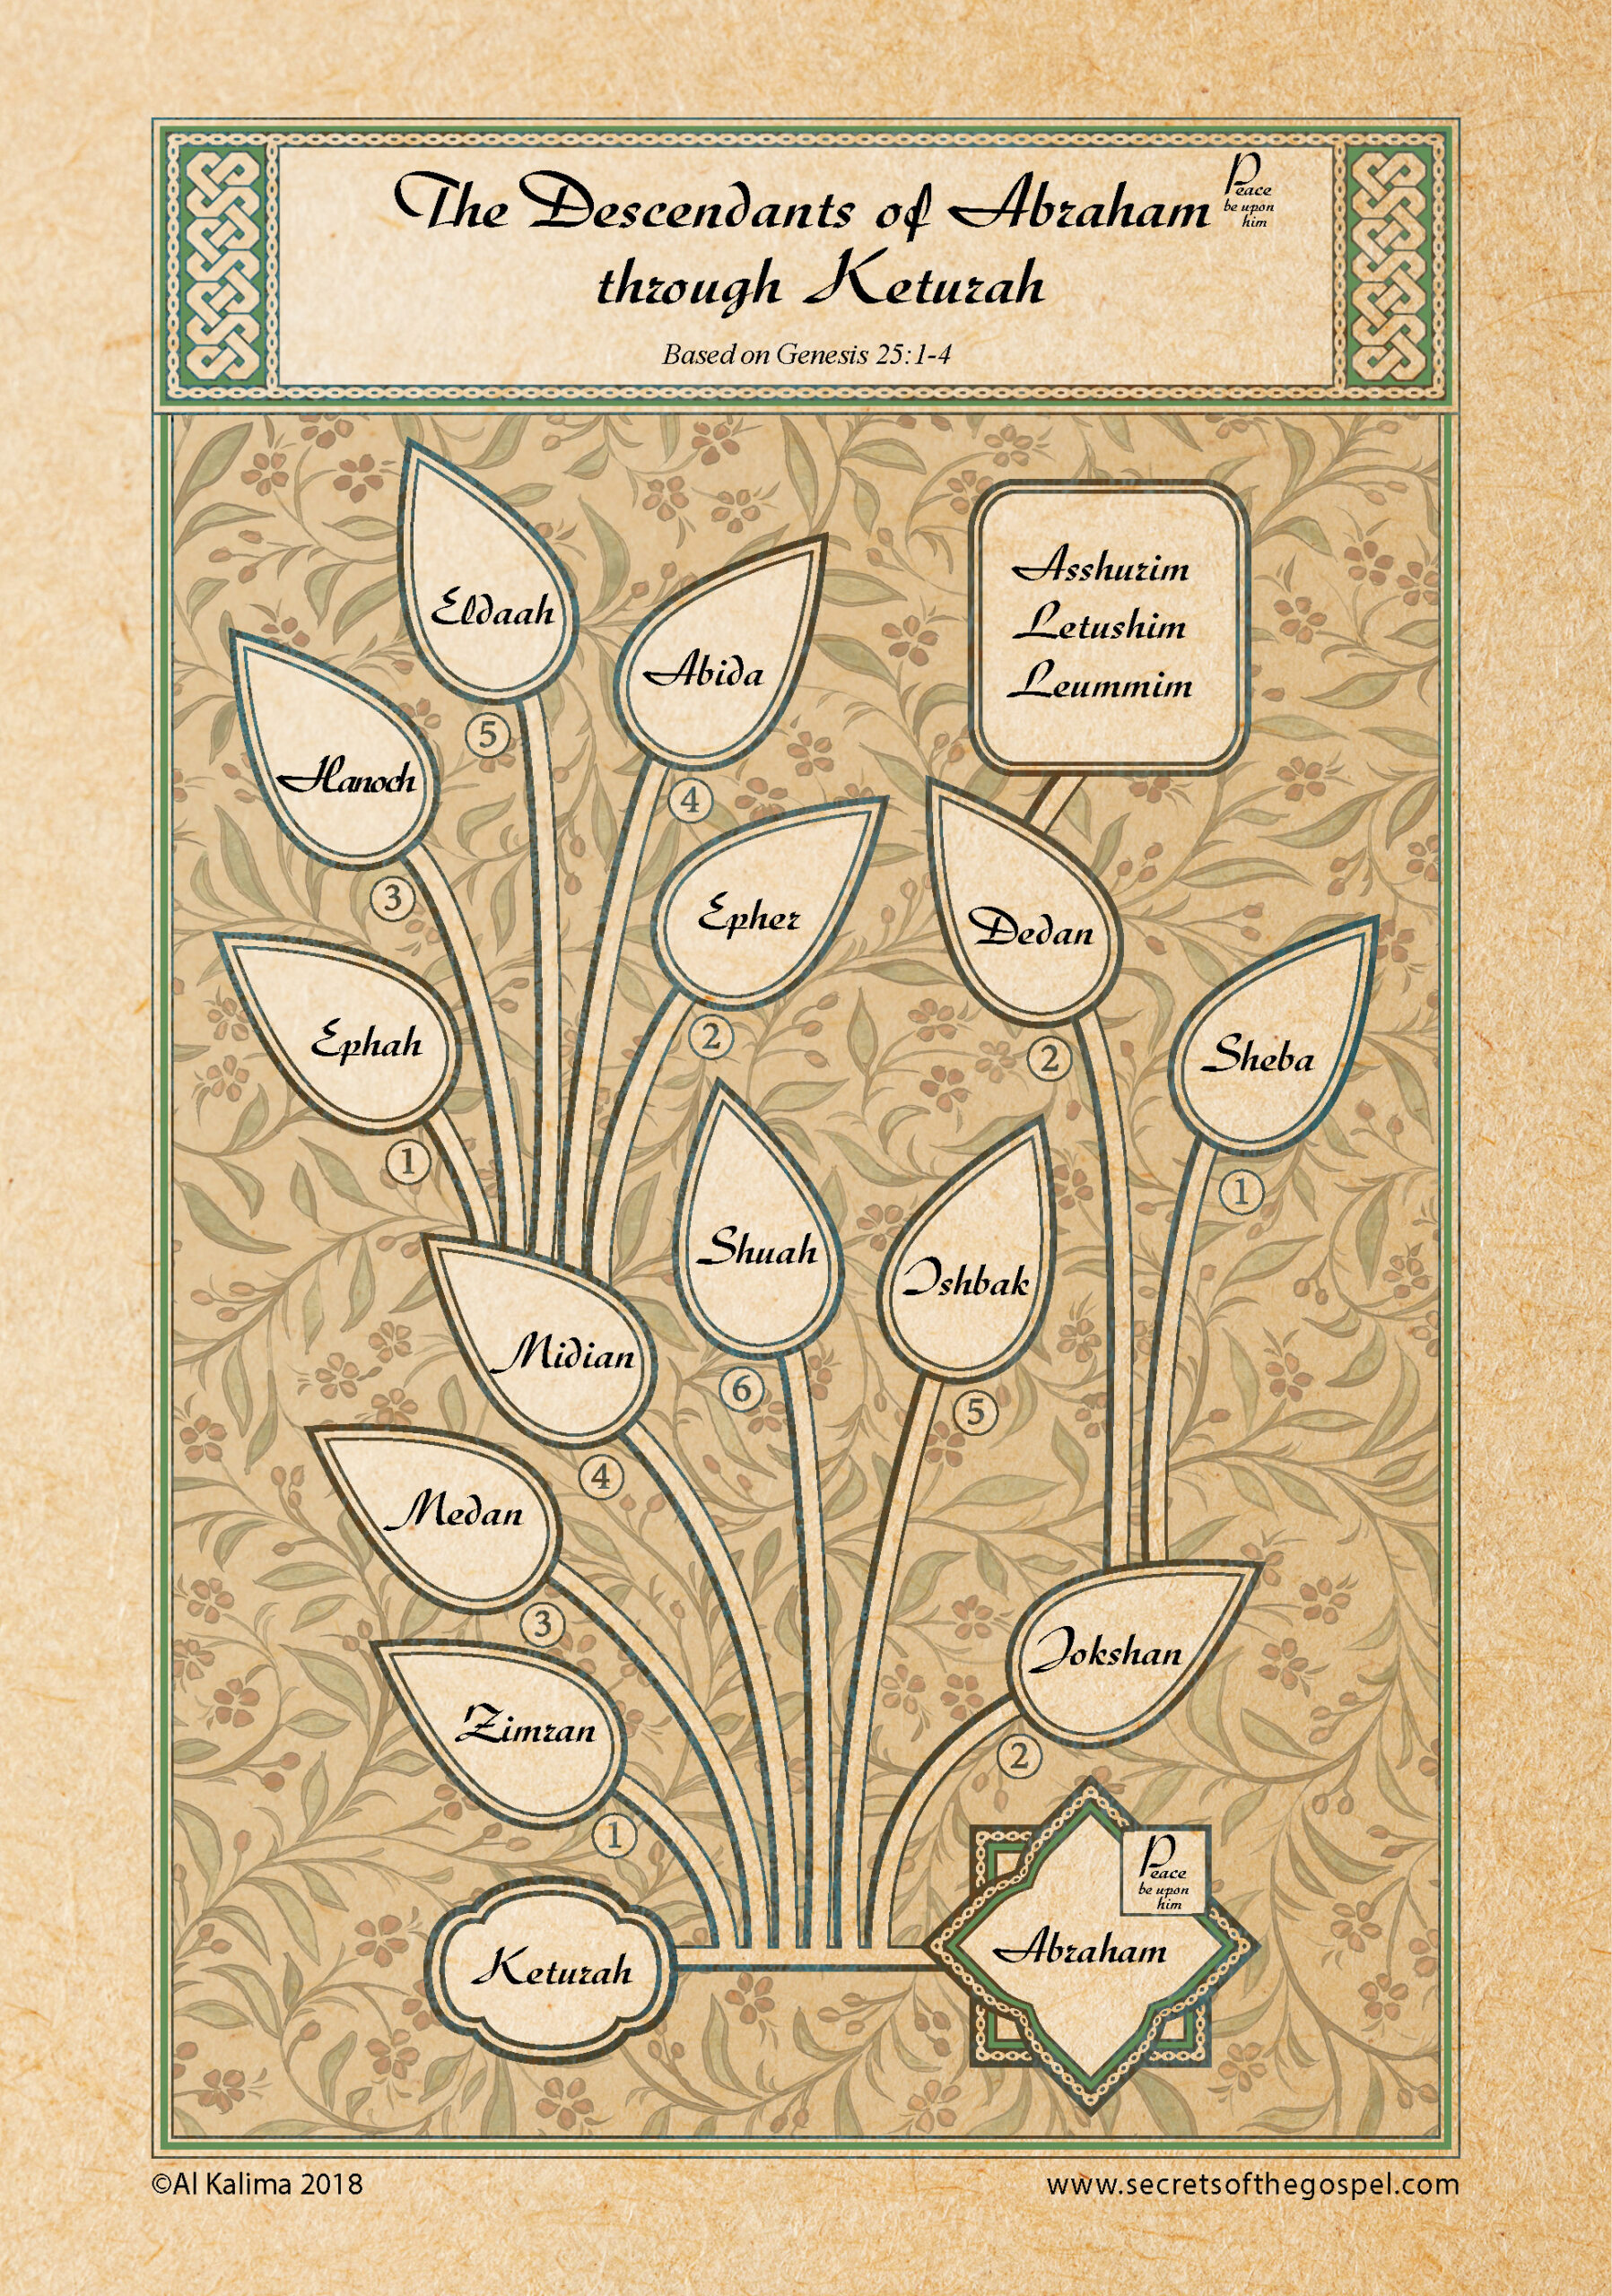 The Descendants of Abraham Peace be upon him
through Keturah
Based on Genesis 25:1-4
Eldaah
5
Abida
4
Asshurim
Letushim
Leummim
Hanoch
3
Epher
2
Dedan
2
Ephah
1
Sheba
1
Shuah
6
Ishbak
5
Midian
4
Medan
3
Jokshan
2
Zimran
1
Keturah
Abraham
Peace
be upon
him
©Al Kalima 2018
www.secretsofthegospel.com